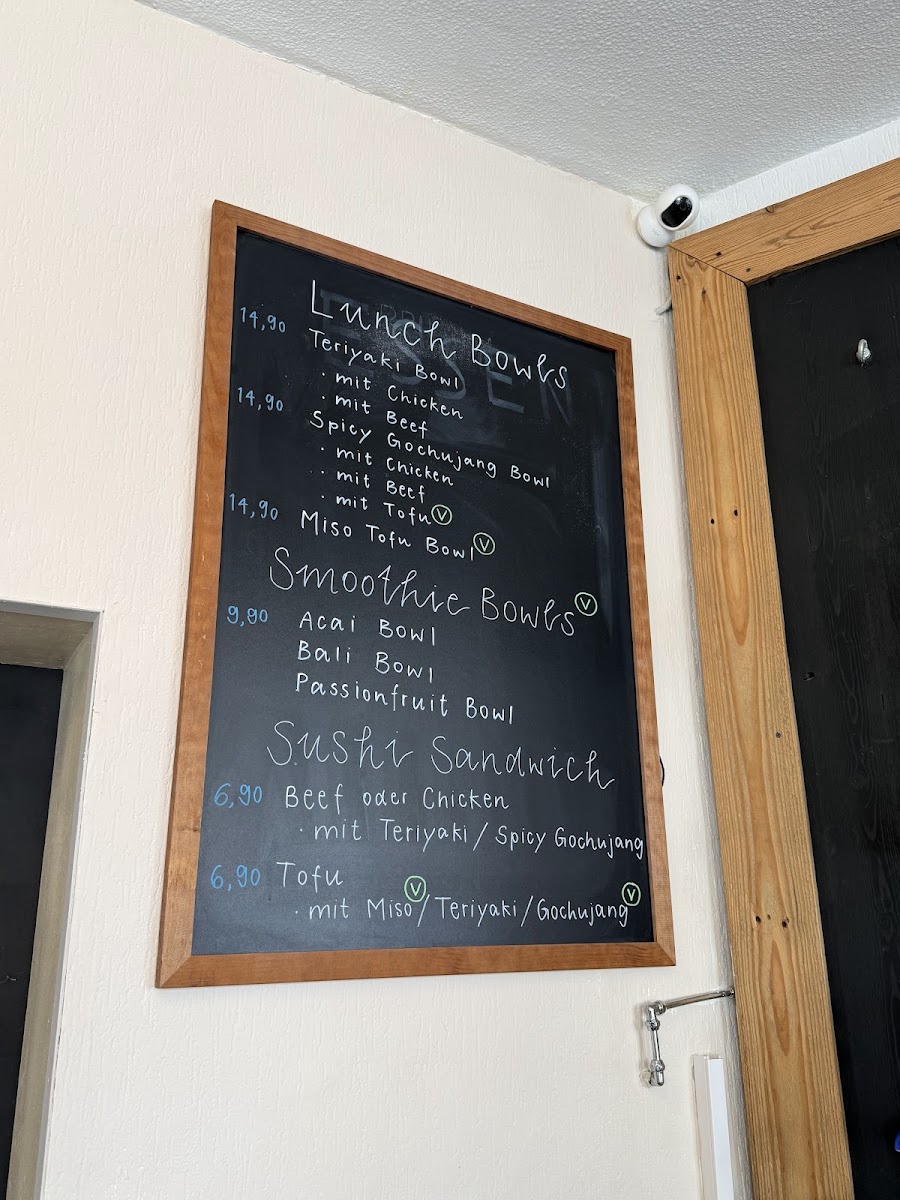 Lunch Bowls
14,90 Teriyaki Bowl
· mit Chicken
· mit Beef
14,90 Spicy Gochujang Bowl
· mit Chicken
· mit Beef
· mit Tofu Ⓥ
14,90 Miso Tofu Bowl Ⓥ
Smoothie Bowls Ⓥ
9,90 Acai Bowl
Bali Bowl
Passionfruit Bowl
Sushi Sandwich
6,90 Beef oder Chicken
· mit Teriyaki/Spicy Gochujang
6,90 Tofu
· mit Miso Ⓥ/Teriyaki/Gochujang Ⓥ